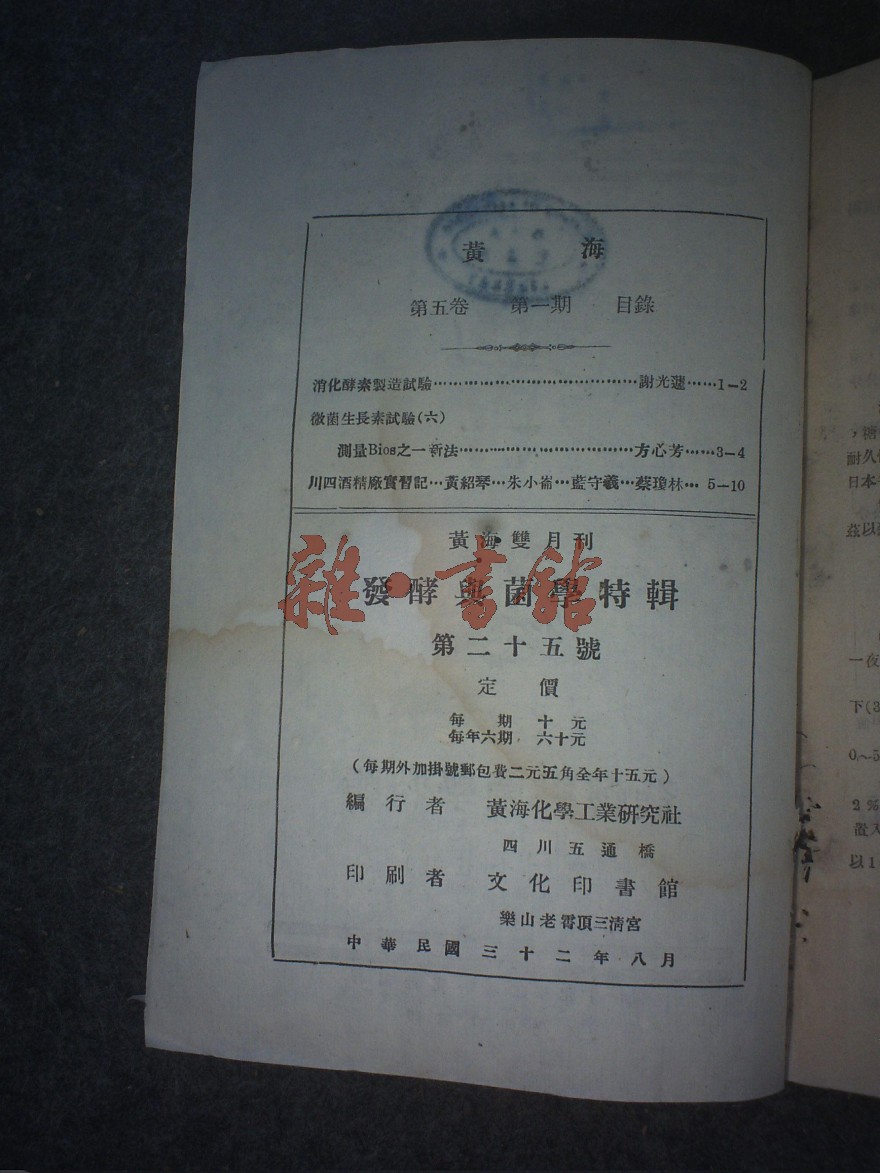 黃海
第五卷 第一期 目錄
消化酵素製造試驗……………………………謝光蘧……1-2
微菌生長素試驗(六)
測量Bios之一新法……………………方心芳……3-4
川四酒精廠實習記…黃紹琴…朱小崙…藍守羲…蔡瓊林…5-10
黃海雙月刊
發酵與菌學特輯
雜·書館
第二十五號
定價
每期十元
每年六期 六十元
(每期外加掛號郵包費二元五角全年十五元)
編行者 黃海化學工業研究社
四川五通橋
印刷者 文化印書館
樂山老霄頂三清宮
中華民國三十二年八月
,糖
耐久
日本
茲以
一夜
下(3
0~5
2%
以1